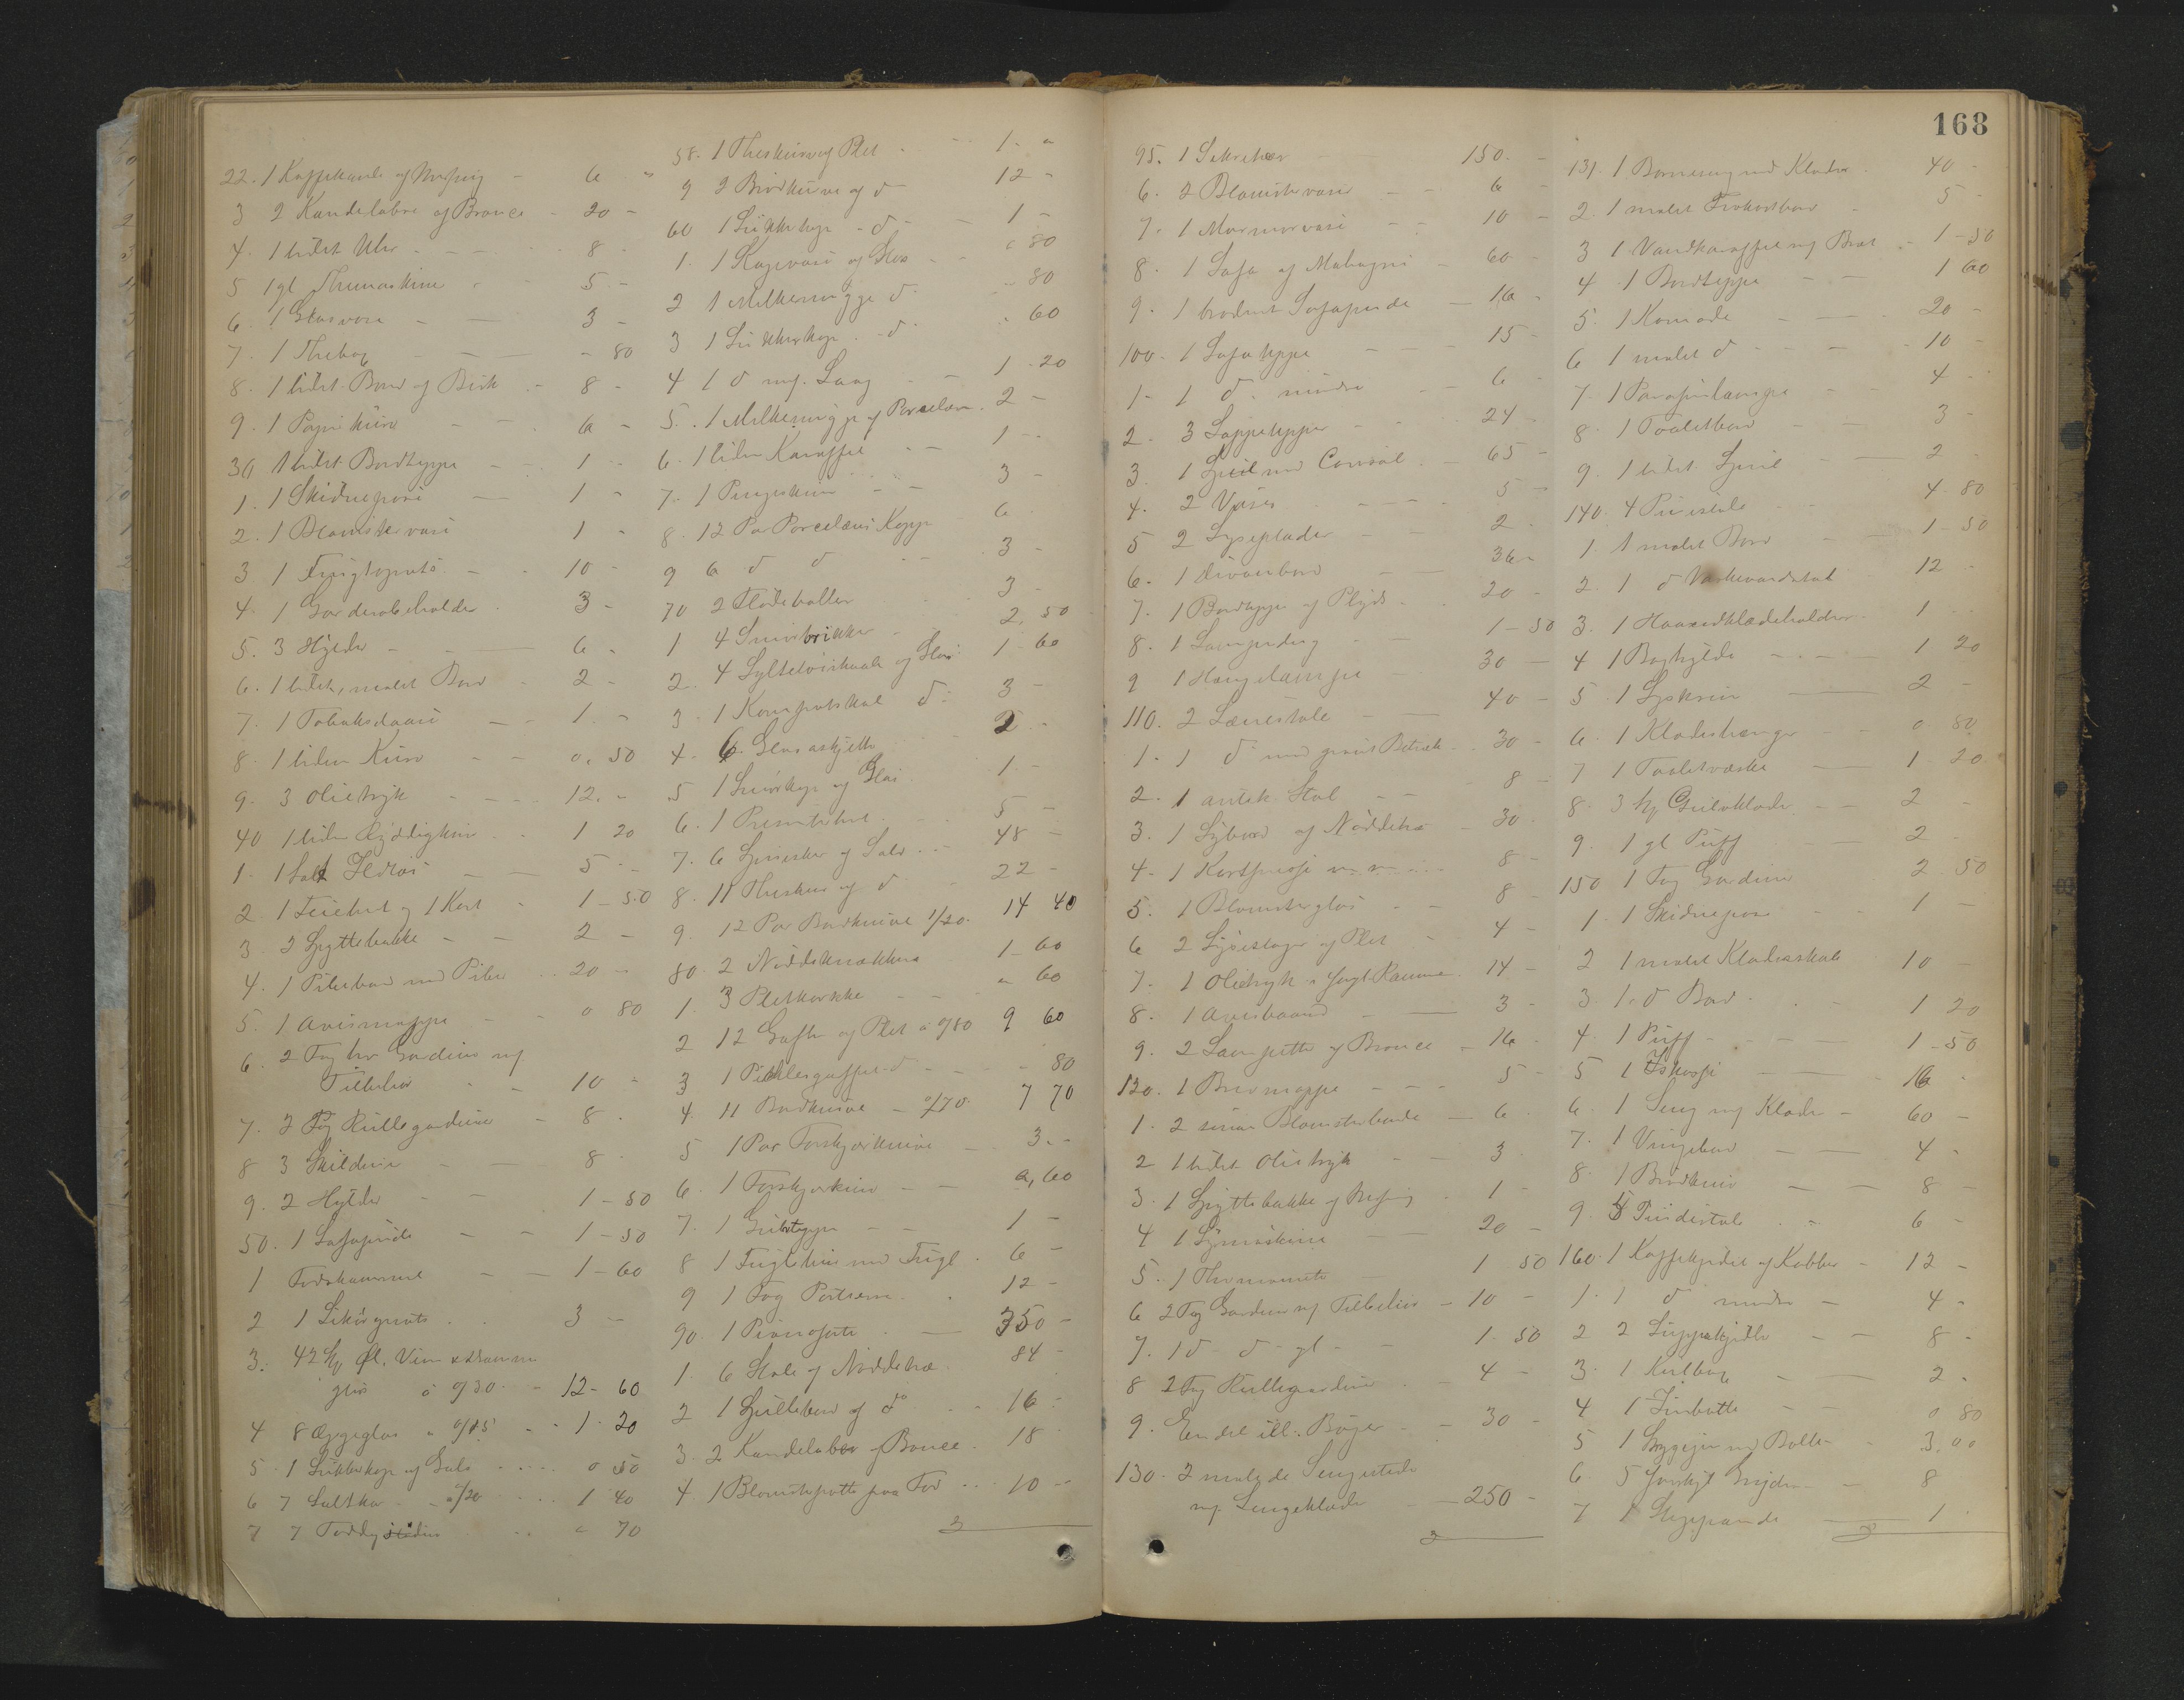 22. 1 Kaffekande af Messing - 6 "
3 2 Kandelabre af Bronce - 20 -
4. 1 lidet Uhr - - - 8 -
5 1 gl Themaskine - 5 -
6. 1 Glasvase - - 3 -
7. 1 Thebox - - - 80
8. 1 lidet Bord af Birk - 8 -
9. 1 Papirkurv - - 6 -
30 1 lidet Bordteppe - 1 -
1. 1 Skidnepose - 1 -
2. 1 Blomstervase 1 -
3 1 - - 10 -
4. 1 Garderobeholder . 3 -
5. 3 Hylder - - 6 -
6. 1 lidet, malet Bord - 2 -
7. 1 Tobaksdaase - - 1. -
8. 1 liden Kurv - - 0. 50
9. 3 Olietryk - - - 12. -
40 1 liden - 1 20
1. 1 - - 5 -
2 1 Feiebret og 1 Kost - 1 - 50
3. 2 Spyttebakke - - 2 -
4. 1 Pidestal med - 20 -
5. 1 Avismappe - - 0 80
6. 2 Fag hv Gardiner mf
Tilbehør - - 10 -
7. 2 Fag Rullegardiner - 8 .
8 3 Skilderier - - 8 .
9. 2 Hylder - - 1 - 50
50. 1 Sofapude - - 1 - 50
1 Fodskammel - - 1 - 60
2 1 Likør . . 3 -
3. 42 Stk Øl. Vin
glas á 0/30 - 12 - 60
4 8 Æggeglas " 0/15 - 1. 20
5. 1 Sukkerkop af Glas . . 0 50
6 7 Saltkar - - 0/20 . . 1 40
7 7 . . " 70
58. 1 Theskurv af Plet . - 1. "
9 2 Brødkurve af d - 12 -
60 1 Sukkerkop - d - - 1 -
1. 1 Kagevase af Glas - - " 80
2 1 Melkemugge d - - 80
3 1 Sukkerkop . - d - " 60
4 1 d mf. Laag - - 1 - 20
5. 1 Melkemugge af Porcelæn. 2 -
6. 1 liden Karaffel - - 1 -
7. 1 - - 3 -
8. 12 Par Porcelæns Kopper 6
9 6 d d - - 3 -
70 2 Flødeboller 3 -
1 4 Smørbrikker - 2, 50
2. 4 Syltetøiskaale af Glas 1 - 60
3. 1 Kompotskaal d: 3 -
4. 6 Glas asjetter 2 -
5 1 Smørkop af Glas 1. -
6. 1 . 5 -
7. 6 Spiseskeer af Sølv . . 48 -
8. 11 Theskeer af d - 22 -
9. 12 Par Bordknive 1/20. 14 40
80. 2 Nøddeknækkere 1 - 60
1. 3 Pletkorke - - " 60
2 12 Gafler af Plet á 0/80 9 60
3 1 Picklesgaffel d - - - 80
4. 11 Bordknive - 0/70. 7 70
5 1 Par Forskjærknive - 3. -
6. 1 Forskjærkniv - - 0, 60
7. 1 Gulvteppe - - 1 -
8 1 Fuglebur med Fugl . 6 -
9 1 Fag Portierer . . 12 -
90. 1 Pianoforte . - 350 -
1. 6 Stole af Nøddetræ . 84 -
2 1 Spillebord af do - - 16 -
3. 2 Kandelaber af Bronce . 18 -
4 1 Blomsterpotte paa Fod . . 10 -
168
95. 1 Sekretær - 150 -
6. 2 Blomstervaser - - 6 -
7. 1 Marmorvase - - 10 -
8. 1 Sofa af Mahogni - 60 -
9. 1 broderet Sofapude - 16 -
100. 1 Sofateppe - - 15 -
1 - 1 d. mindre - - 6 -
2. 3 Sofatepper - - 24 -
3. 1 Speil med Consol . - 65 -
4. 2 Vaser . - - - 5 -
5 2 Lyseplader - - 2 .
6. 1 Divanbord - - 36 -
7. 1 Bordteppe af Plyds . 20 -
8. 1 - - 1 - 50
9 1 Hængelampe - 30 -
110. 2 Lænestole - - 40 -
1. 1 d med grønt Betræk - 30 -
2. 1 antik Stol - - 8 -
3. 1 Sybord af Nøddetræ - 30 -
4. 1 - - - 8 -
5. 1 Blomsterglas - - 8 -
6 2 Lysestager af Plet - 4 -
7. 1 Olietryk i Kamme 14 -
8. 1 Avisbaand - - 3 -
9. 2 Lampetter af Bronce - 16 -
120. 1 Brevmappe - - - 5 -
1. 2 smaa Blomsterborde - 6 -
2 1 lidet Olietryk - - 3 -
3. 1 Spyttebakke af Messing . 1 -
4 1 Symaskine - - 20 -
5. . 1 Thermometer - 1 50
6 2 Fag Gardiner mf Tilbehør - 10 -
7. 1 d - d - gl - - 1. 50
8 2 Fag Rullegardiner . - 4 -
9. En del ill. Bøger - - 30 -
130. 2 malede Sengesteder
mf. Sengeklæder - - 250 -
131. 1 Barneseng med Klæder . 40 -
2. 1 malet Frokostbord - 5 -
3 1 Vandkaraffel mf Bræt - 1 - 50
4 1 Bordteppe - - 1 60
5. 1 Komode - - 20 -
6 1 malet d - - - 10 -
7. 1 Parafinlampe - - 4 -
8. 1 Toiletbord - - 3 -
9. 1 lidet Speil - - 2 -
140. 4 Pindestole . . 4. 80
1. 1 malet Bord - - 1 - 50
2. 1 d Vaskevandstol - 12 -
3. 1 Haandklædeholder . 1 - -
4 1 Boghylde - - - 1 20
5 . 1 - 2 -
6. 1 Klædeshænger - - 0 80
7 1 Toiletvæske - - 1 20
8. 3 Stk Gulvklæder - - 2 -
9. 1 gl Puff - - 2 -
150 1 Fag Gardiner 2 50
1. 1 Skidnepose - - 1 -
2 1 malet Klædesskab 10 -
3. 1 d Bord . . - 1 20
4. 1 Puff - - - - 1 - 50
5 1 - 16 -
6. 1 Seng mf Klæder - 60 -
7. 1 Vingebord - - 4 -
8. 1 - - 8 -
9. Pindestole . - 6 -
160. 1 Kaffekjedel af Kobber - 12 -
1. 1 d mindre - 4 -
2 2 - - 8 -
3. 1 - - 2 .
4 1 Zinkbøtte - - 0 80
5 1 3,00
6. 5 forskjl Gryder - - 8
7 1 Stegepande - 1 .